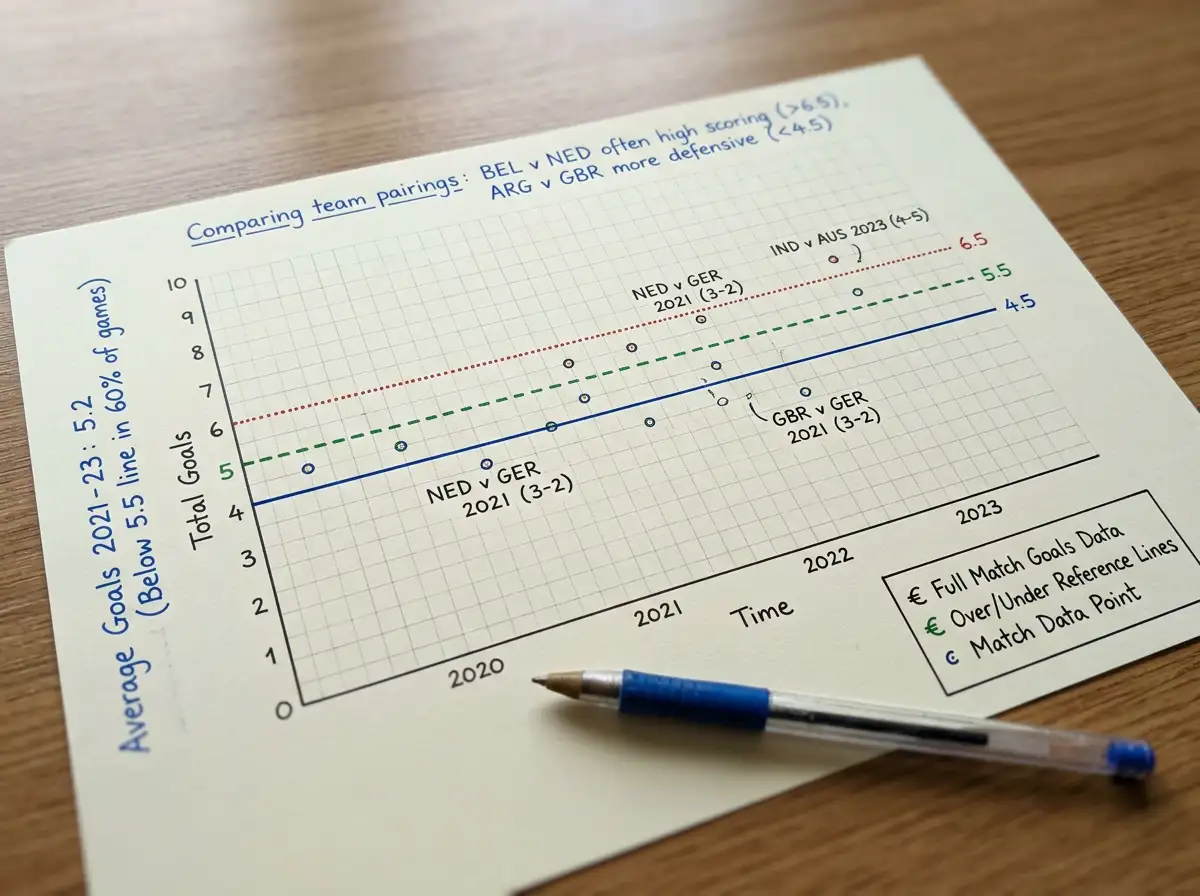 Comparing team pairings: BEL v NED often high scoring (>6.5),
ARG v GBR more defensive (<4.5)
Average Goals 2021-23: 5.2
(Below 5.5 line in 60% of games)
Total Goals
10
9
8
7
6
5
4
3
2
1
0
IND v AUS 2023 (4-5)
NED v GER
2021 (3-2)
6.5
5.5
4.5
NED v GER
2021 (3-2)
GBR v GER
2021 (3-2)
2020
2021
2022
2023
Time
€ Full Match Goals Data
€ Over/Under Reference Lines
c Match Data Point